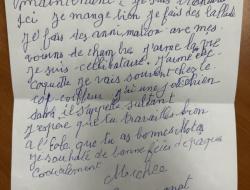 maintenant! Je suis
ici je mange bien je fais des ballade
je fais des annimation avec mes
voisins de chambre j'aime la télé
je suis célibataire. J'aime être
Coquette je vais souvent chez le
cop-coiffeur j'ai une chien
il s'appelle sultant
J'espère que tu travailles bien
à l'Ecole que tu as bonnes notes
je souhaite de bonne fêtes de paques
Cordialement
Michèle